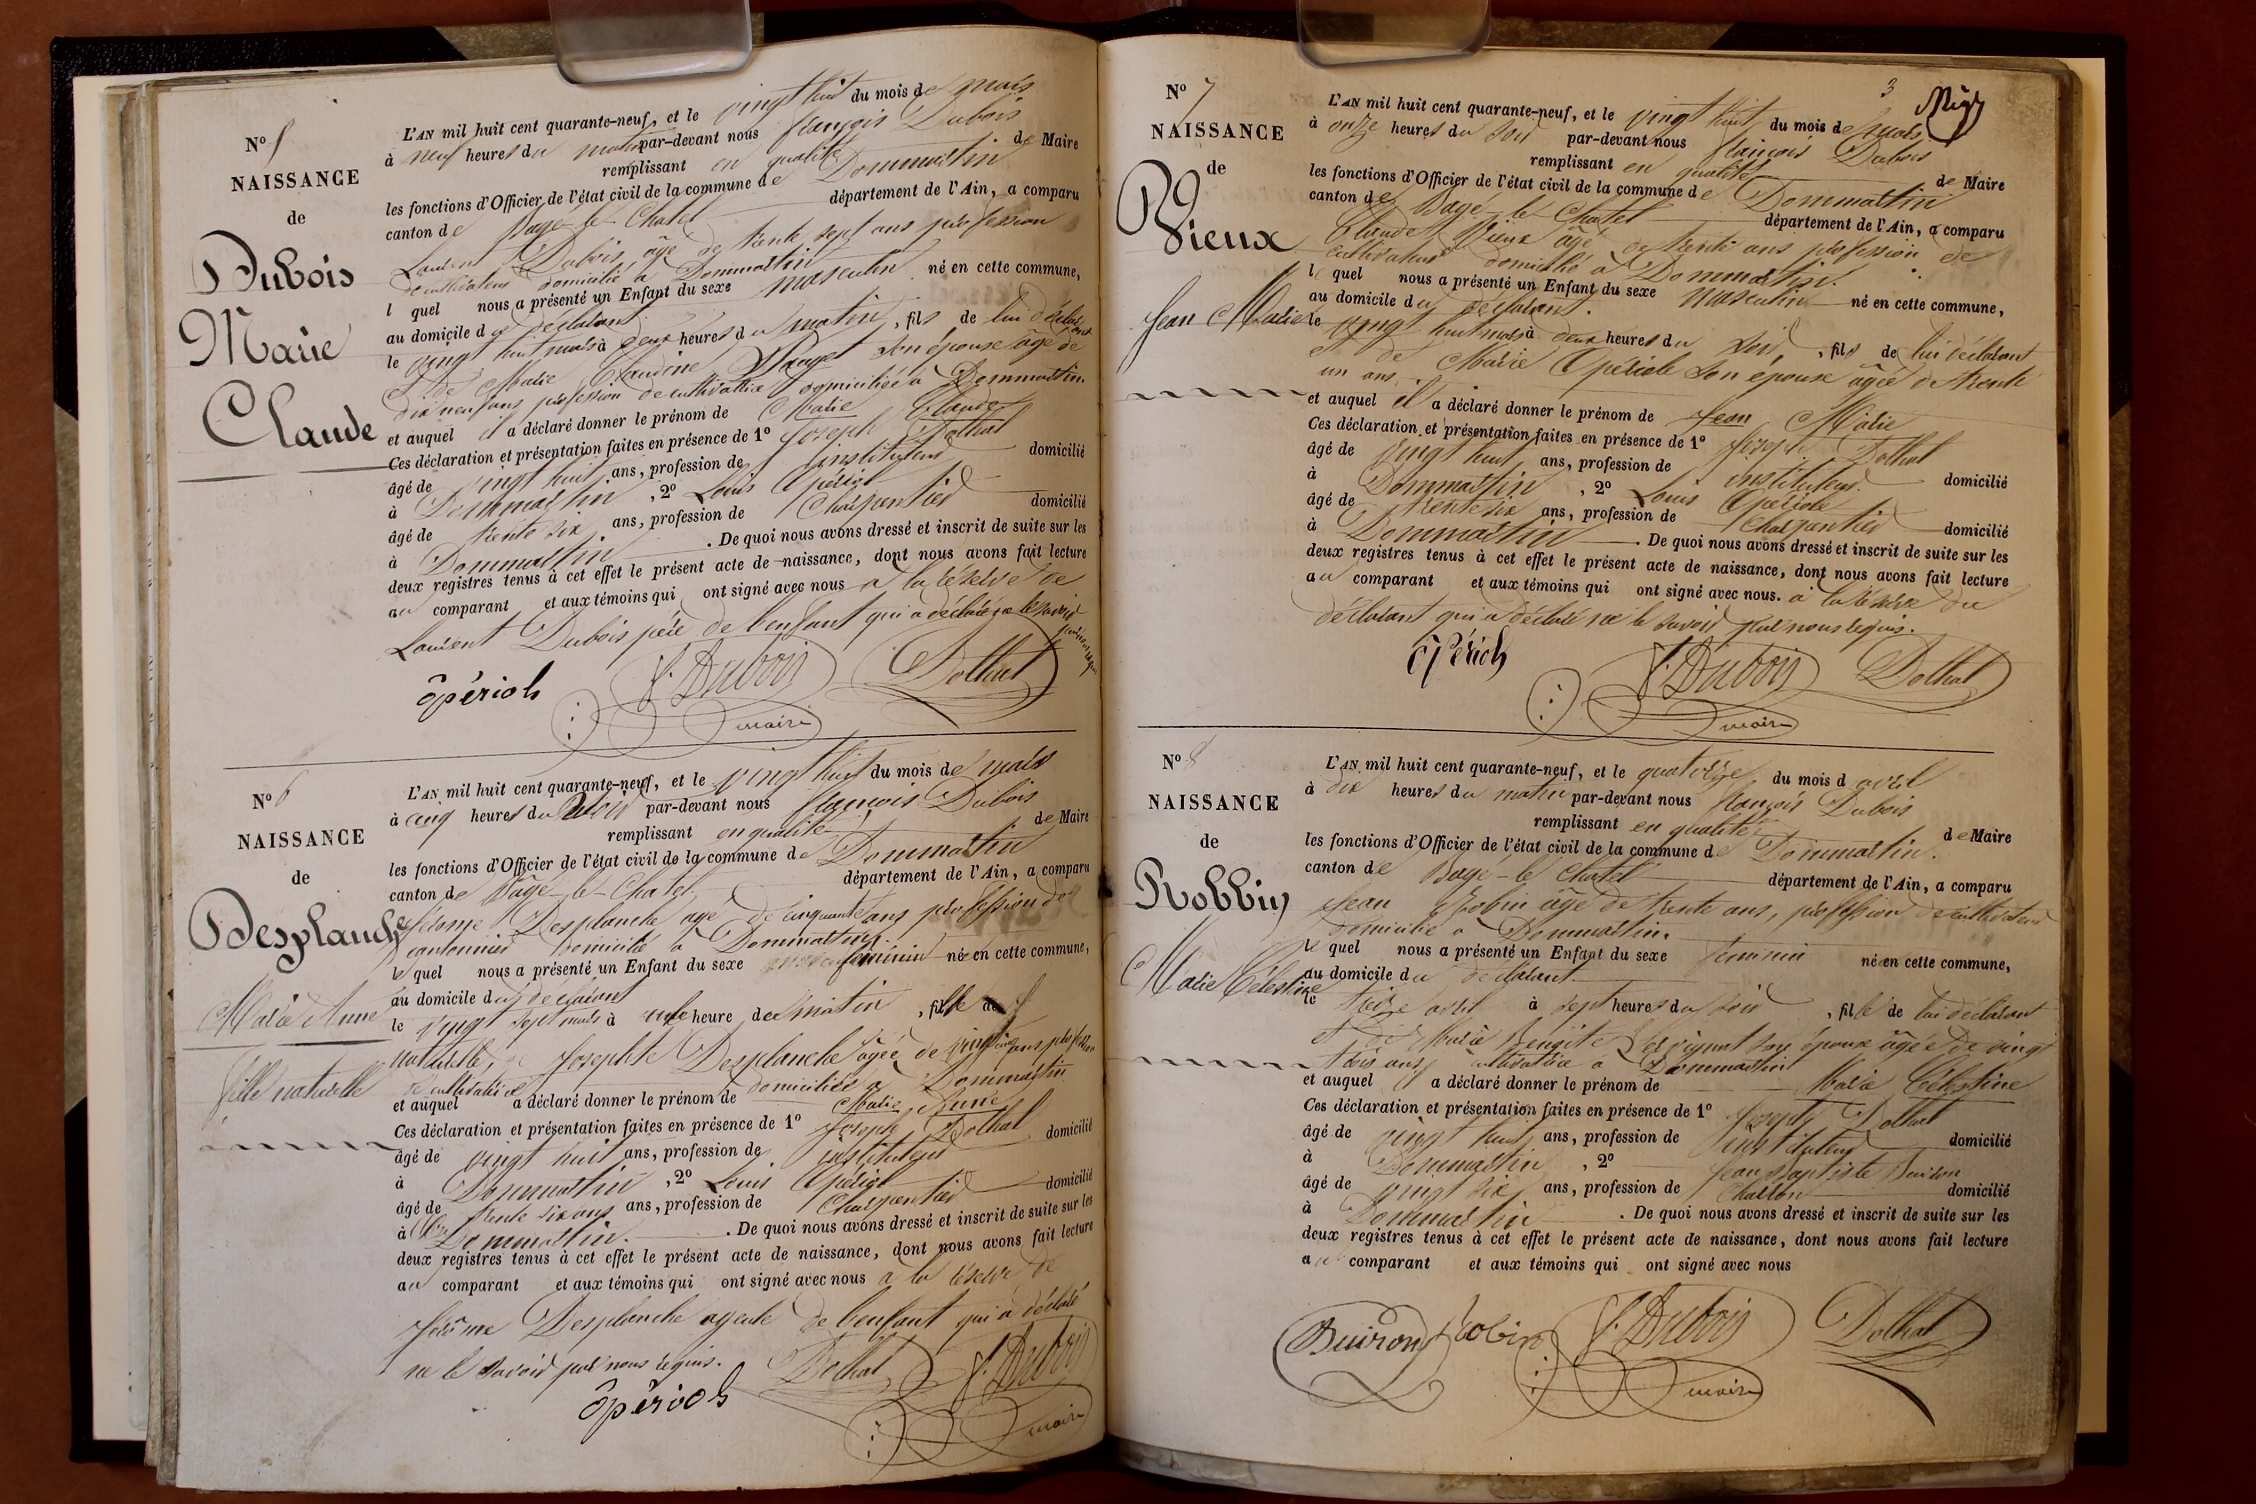 N° 5
NAISSANCE
de
Dubois
Marie
Claude
L'AN mil huit cent quarante-neuf, et le vingt huit du mois de mars
à neuf heures du matin par-devant nous françois Dubois
remplissant en qualité de Maire
les fonctions d'Officier de l'état civil de la commune de Dommartin
canton de Bagé-le-Chatel département de l'Ain, a comparu
Laurent Dubois, âgé de trente sept ans profession
de cultivateur domicilié à Dommartin
lequel nous a présenté un Enfant du sexe masculin né en cette commune,
au domicile du déclarant
le vingt huit mars à deux heures du matin, fils de lui déclarant
et de Marie Claudine son épouse âgée de
dix neuf ans profession de cultivatrice domiciliée à Dommartin.
et auquel il a déclaré donner le prénom de Marie Claude
Ces déclaration et présentation faites en présence de 1° Joseph Dolhat
âgé de vingt huit ans, profession de instituteur domicilié
à Dommartin, 2° Louis Opériol
âgé de trente six ans, profession de Charpentier domicilié
à Dommartin. De quoi nous avons dressé et inscrit de suite sur les
deux registres tenus à cet effet le présent acte de naissance, dont nous avons fait lecture
au comparant et aux témoins qui ont signé avec nous à la réserve de
Laurent Dubois père de l'enfant qui a déclaré ne le savoir
par nous requis
ôpériol F. Dubois Dolhat
maire
N° 6
NAISSANCE
de
Desplanche
Marie Anne
fille naturelle
L'AN mil huit cent quarante-neuf, et le vingt huit du mois de mars
à cinq heures du soir par-devant nous françois Dubois
remplissant en qualité de Maire
les fonctions d'Officier de l'état civil de la commune de Dommartin
canton de Bagé-le-Chatel département de l'Ain, a comparu
Jérôme Desplanche agé de cinquante ans profession de
cantonnier domicilié à Dommartin.
lequel nous a présenté un Enfant du sexe féminin née en cette commune,
au domicile du déclarant
le vingt sept mars à une heure du matin, fille de
naturelle, Josephte Desplanche âgée de vingt cinq ans profession
de cultivatrice domiciliée à Dommartin
et auquel a déclaré donner le prénom de Marie Anne
Ces déclaration et présentation faites en présence de 1° Joseph Dolhat
âgé de vingt huit ans, profession de instituteur domicilié
à Dommartin, 2° Louis Opériol
âgé de trente six ans ans, profession de Charpentier domicilié
à Dommartin. De quoi nous avons dressé et inscrit de suite sur les
deux registres tenus à cet effet le présent acte de naissance, dont nous avons fait lecture
au comparant et aux témoins qui ont signé avec nous à la réserve de
Jérôme Desplanche ayeule de l'enfant qui a déclaré
ne le savoir par nous requis. Dolhat F. Dubois
ôpériol maire
3
N° 7
NAISSANCE
de
Vieux
Jean Marie
L'AN mil huit cent quarante-neuf, et le vingt huit du mois de mars
à onze heures du soir par-devant nous françois Dubois
remplissant en qualité de Maire
les fonctions d'Officier de l'état civil de la commune de Dommartin
canton de Bagé-le-Chatel département de l'Ain, a comparu
Claude Vieux âgé de trente ans profession de
cultivateur domicilié à Dommartin.
lequel nous a présenté un Enfant du sexe masculin né en cette commune,
au domicile du déclarant.
le vingt huit mars à deux heures du soir, fils de lui déclarant
et de Marie Opériole son épouse âgée de trente
un ans.
et auquel il a déclaré donner le prénom de Jean Marie
Ces déclaration et présentation faites en présence de 1° Joseph Dolhat
âgé de vingt huit ans, profession de instituteur domicilié
à Dommartin, 2° Louis Opériole
âgé de trente six ans, profession de Charpentier domicilié
à Dommartin. De quoi nous avons dressé et inscrit de suite sur les
deux registres tenus à cet effet le présent acte de naissance, dont nous avons fait lecture
au comparant et aux témoins qui ont signé avec nous. à la réserve du
déclarant qui a déclaré ne le savoir par nous requis.
ôpériol F. Dubois Dolhat
maire
N° 8
NAISSANCE
de
Robbin
Marie Célestine
L'AN mil huit cent quarante-neuf, et le quatorze du mois d avril
à dix heures du matin par-devant nous françois Dubois
remplissant en qualité de Maire
les fonctions d'Officier de l'état civil de la commune de Dommartin.
canton de Bagé-le-Chatel département de l'Ain, a comparu
Jean Robin âgé de trente ans, profession de cultivateur
domicilié à Dommartin.
lequel nous a présenté un Enfant du sexe féminin née en cette commune,
au domicile du déclarant
le treize avril à sept heures du soir, fille de lui déclarant
et de Marie son épouse âgée de vingt
trois ans cultivatrice à Dommartin
et auquel il a déclaré donner le prénom de Marie Célestine
Ces déclaration et présentation faites en présence de 1° Joseph Dolhat
âgé de vingt huit ans, profession de instituteur domicilié
à Dommartin, 2° Jean Baptiste Buiron
âgé de vingt six ans, profession de Charron domicilié
à Dommartin. De quoi nous avons dressé et inscrit de suite sur les
deux registres tenus à cet effet le présent acte de naissance, dont nous avons fait lecture
au comparant et aux témoins qui ont signé avec nous
Buiron Robin F. Dubois Dolhat
maire